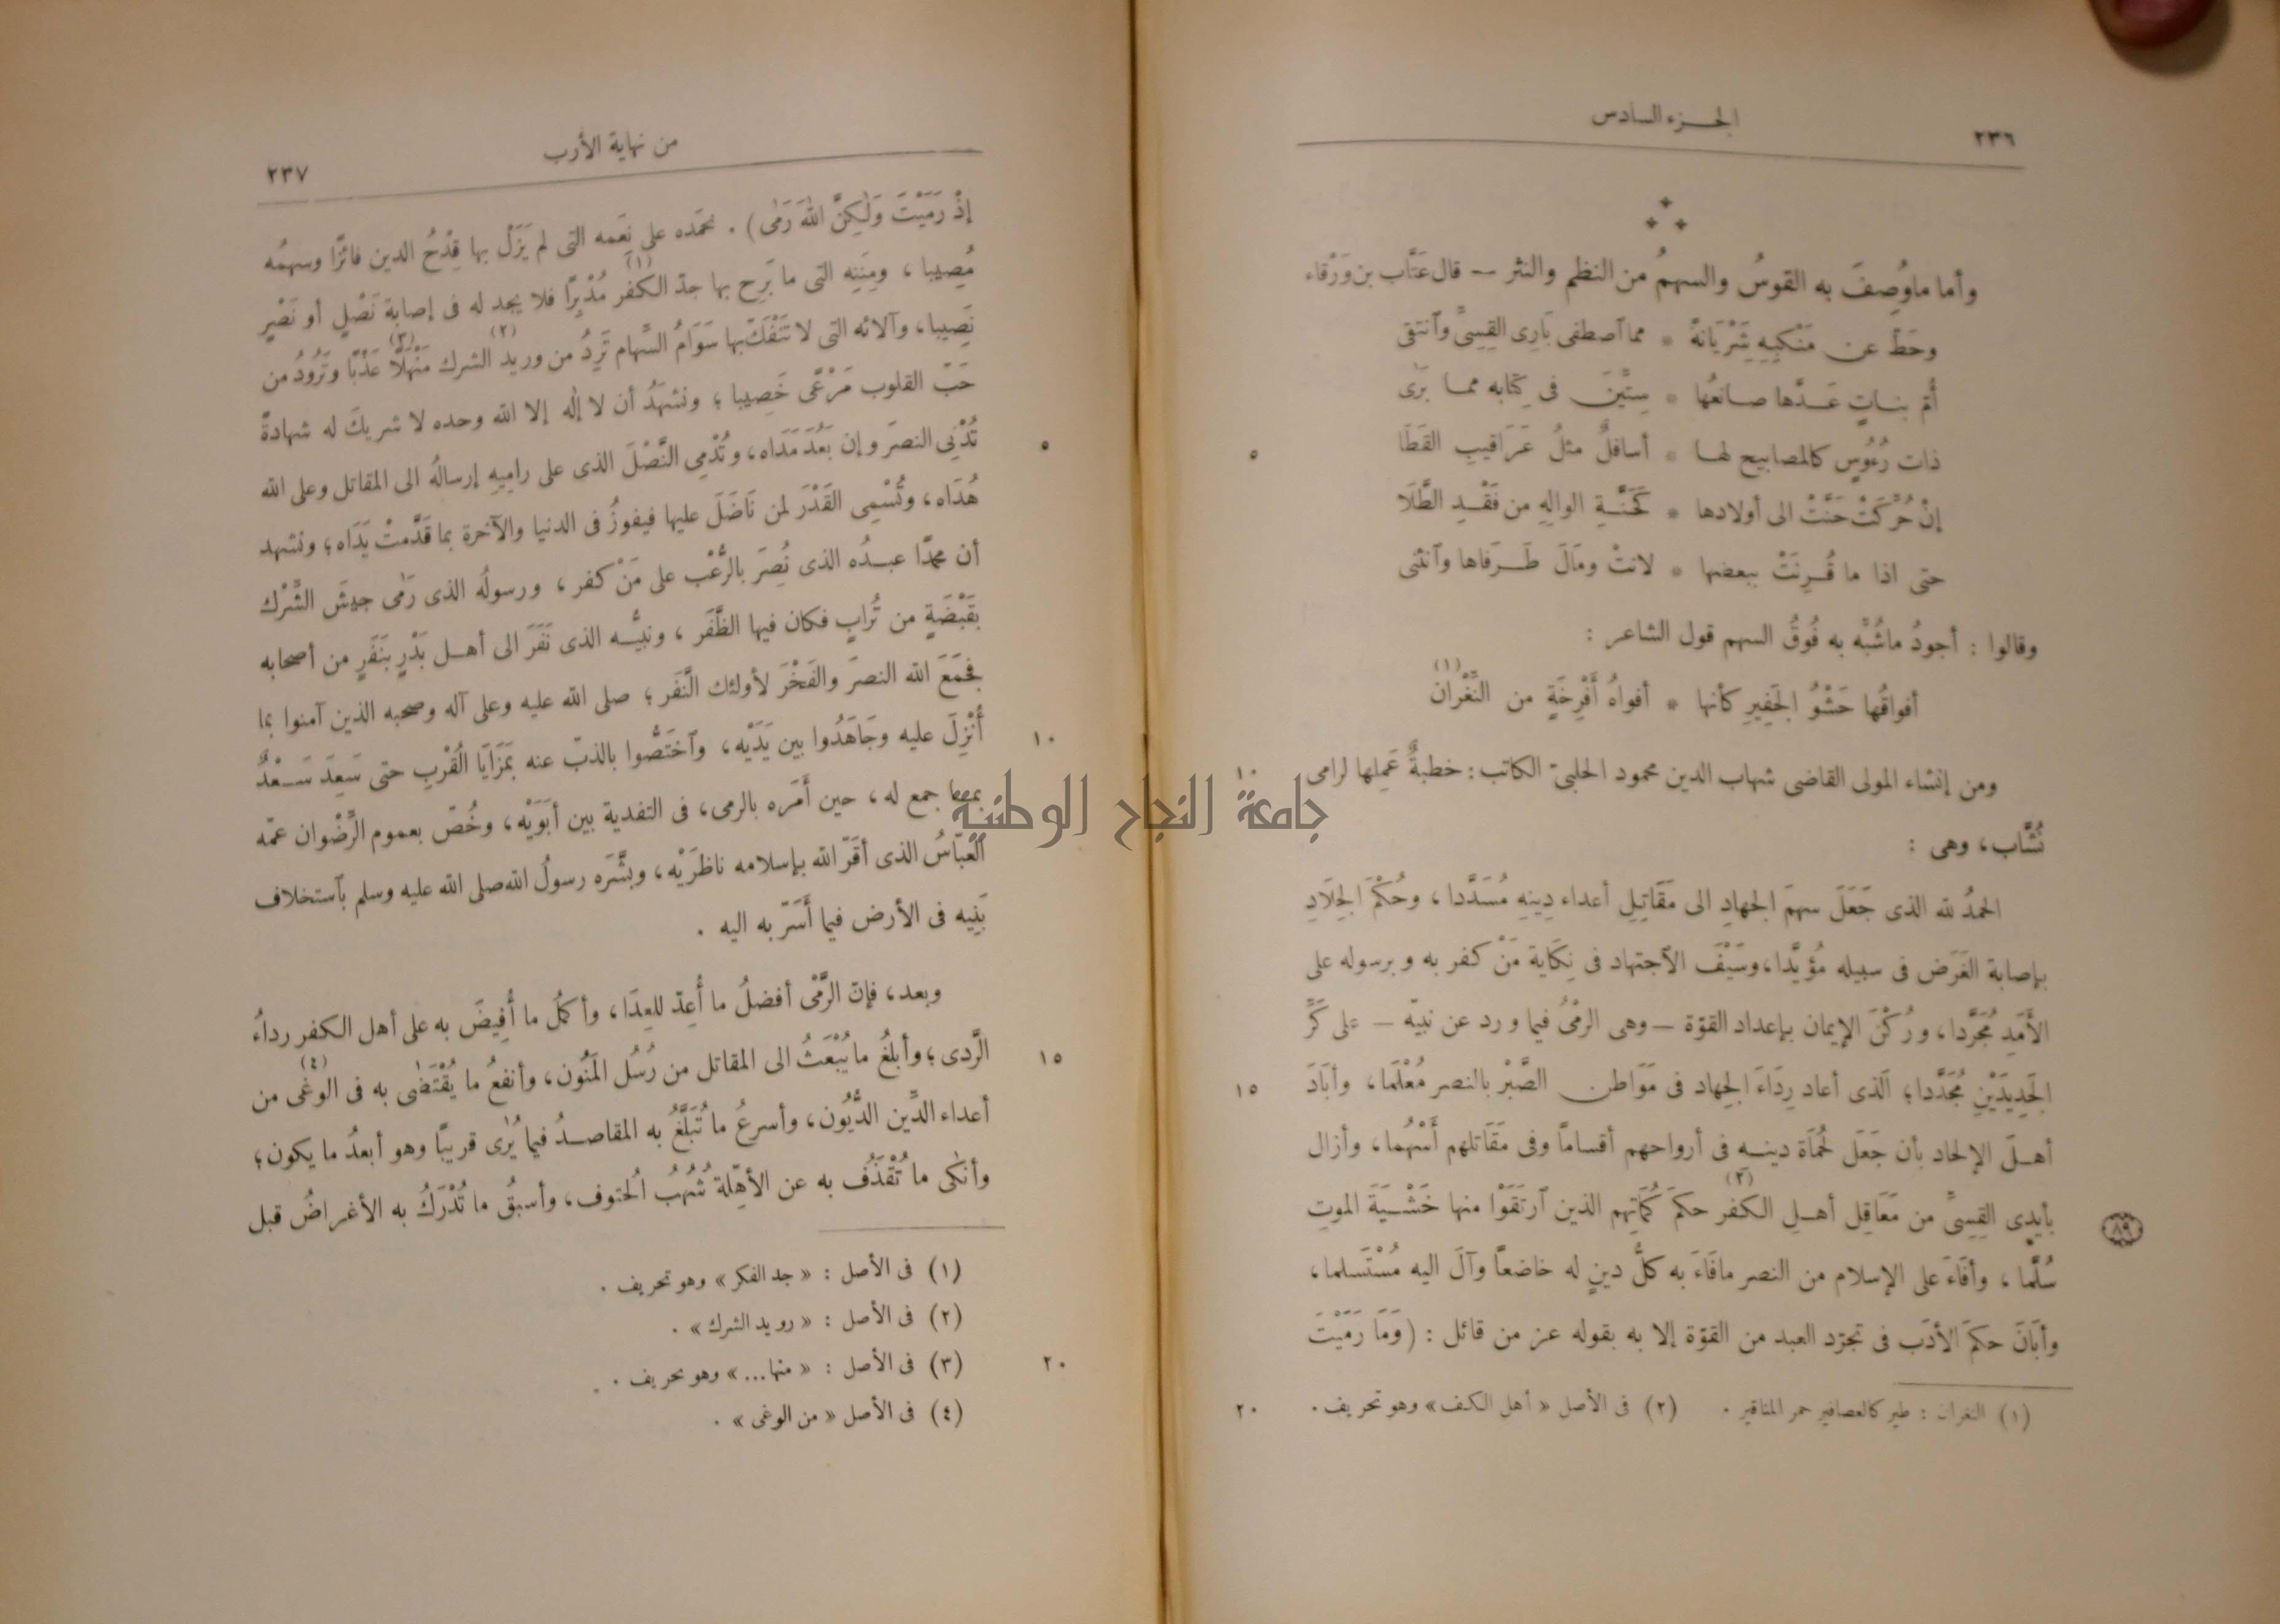 ٢٣٦
الجزء السادس
وأما ما وُصِفَ به القوسُ والسهمُ من النظم والنثر — قال عَتَّاب بن وَرْقاء
وحَطَّ عن مَنْكِبِهِ شَرْيَانةً * مما ٱصطفى بَارِى القِسِىِّ وٱنتقى
أُمّ بناتٍ عَدَّها صانعُها * سِتِّينَ فى كِتَابه مما بَرَى
ذات رُءُوسٍ كالمصابيح لها * أسافلٌ مثلُ عَرَاقيبِ القَطَا
إنْ حُرِّكَتْ حَنَّتْ الى أولادها * كَحَنَّةِ الوالِهِ من فَقْدِ الطَّلَا
حتى اذا ما قُرِنَتْ ببعضها * لانتْ ومَالَ طَرَفاها وٱنثنى
وقالوا : أجودُ ماشُبِّه به فُوقُ السهم قول الشاعر :
أفواقُها حَشْوُ الجَفِيرِ كأنها * أفواهُ أَفْرِخَةٍ من النِّغْران (١)
ومن إنشاء المولى القاضى شهاب الدين محمود الحلبىّ الكاتب : خطبةٌ عَمِلها لرامى
١٠
نُشَّاب، وهى :
الحمدُ لله الذى جَعَلَ سهمَ الجهادِ الى مَقَاتِلِ أعداء دِينِهِ مُسَدَّدا ، وحُكْمَ الجِلَادِ
بإصابة الغَرَض فى سبيله مؤيَّدا، وسَيْفَ الآجتهاد فى نِكَاية مَنْ كفر به وبرسوله على
الأَمَدِ مُجَرَّدا، ورُكْنَ الإيمان بإعداد القوّة — وهى الرمْىُ فيما ورد عن نبيّه — على كَرِّ
الجَدِيدَيْنِ مُجَدَّدا؛ الذى أعاد رِدَاءَ الجهاد فى مَوَاطن الصَّبْر بالنصر مُعْلَما، وأبَادَ
١٥
أهلَ الإلحاد بأن جَعَل لحُمَاة دينه فى أرواحهم أقسامًا وفى مَقَاتلهم أَسْهُما، وأزال
بأيدى القِسِىِّ من مَعَاقِل أهلِ الكفر (٢) حكمَ كُمَاتِهم الذين ٱرتَقَوْا منها خَشْيَةَ الموتِ
٨٩
سُلَّما، وأفَاءَ على الإسلام من النصر مافَاءَ به كلُّ دينٍ له خاضعًا وآلَ اليه مُسْتَسلما،
وأبَانَ حكمَ الأدَب فى تجرّد العبد من القوّة إلا به بقوله عز من قائل : (وَمَا رَمَيْتَ
(١) النغران : طير كالعصافير حمر المناقير . (٢) فى الأصل « أهل الكف» وهو تحريف .
٢٠
٥
من نهاية الأرب
٢٣٧
إذْ رَمَيْتَ وَلَٰكِنَّ اللهَ رَمَى) . نحمَده على نِعَمه التى لم يَزَلْ بها قِدْحُ الدين فائزًا وسهمُه
مُصِيبا ، ومِنَنِه التى ما بَرِح بها جدّ الكفر (١) مُدْبِرًا فلا يجد له فى إصابة نَصْلٍ أو نَصْرٍ
نَصِيبا، وآلائه التى لا تَنْفَكّ بها سَوَامُ السِّهام تَرِدُ من وريد (٢) الشرك مَنْهَلًا (٣) عَذْبًا وتَرُودُ من
حَبّ القلوب مَرْعًى خَصِيبا ؛ ونشهَدُ أن لا إلٰه إلا الله وحده لا شريكَ له شهادةً
تُدْنِى النصرَ وإن بَعُدَ مَدَاه، وتُدْمِى النَّصْلَ الذى على رامِيهِ إرسالُه الى المقاتل وعلى الله
٥
هُدَاه، وتُسْمِى القَدْرَ لمن نَاضَلَ عليها فيفوزُ فى الدنيا والآخرة بما قدَّمتْ يَدَاه؛ ونشهد
أن محمدًا عبدُه الذى نُصِرَ بالرُّعْب على مَنْ كفر ، ورسولُه الذى رَمَى جيشَ الشِّرْك
بقَبْضَةٍ من تُرابٍ فكان فيها الظَّفَر ، ونبيُّه الذى نَفَرَ الى أهل بَدْرٍ بنَفَرٍ من أصحابه
فجَمَعَ الله النصرَ والفَخْرَ لأولئك النَّفَر ؛ صلى الله عليه وعلى آله وصحبه الذين آمنوا بما
أُنْزِلَ عليه وجَاهَدُوا بين يَدَيْه، وٱختَصُّوا بالذبّ عنه بمَزَايَا القُرْب حتى سَعِدَ سَعْدٌ
١٠
بمـا جمع له ، حين أَمَره بالرمى، فى التفدية بين أبَوَيْه، وخُصّ بعموم الرِّضْوان عمّه
العبّاسُ الذى أقَرّ الله بإسلامه ناظرَيْه، وبشَّرَه رسولُ الله صلى الله عليه وسلم بٱستخلاف
بَنِيه فى الأرض فيما أَسَرّ به اليه .
وبعد، فإنّ الرَّمْى أفضلُ ما أُعِدّ للعِدَا، وأكملُ ما أُفِيضَ به على أهل الكفر رداءُ
الرَّدى؛ وأبلغُ ما يُبْعَثُ الى المقاتل من رُسُل المَنُون، وأنفعُ ما يُقْتَضَى به فى الوغى (٤) من
١٥
أعداء الدِّين الدُّيُون، وأسرعُ ما تُبَلَّغُ به المقاصدُ فيما يُرَى قريبًا وهو أبعدُ ما يكون؛
وأنكى ما تُقْذَفُ به عن الأهِلّة شُهُبُ الحتوف، وأسبقُ ما تُدْرَكُ به الأغراضُ قبل
(١) فى الأصل : « جد الفكر » وهو تحريف .
(٢) فى الأصل : « رويد الشرك» .
(٣) فى الأصل : « منها... » وهو تحريف .
٢٠
(٤) فى الأصل « من الوغى » .
جامعة النجاح الوطنية